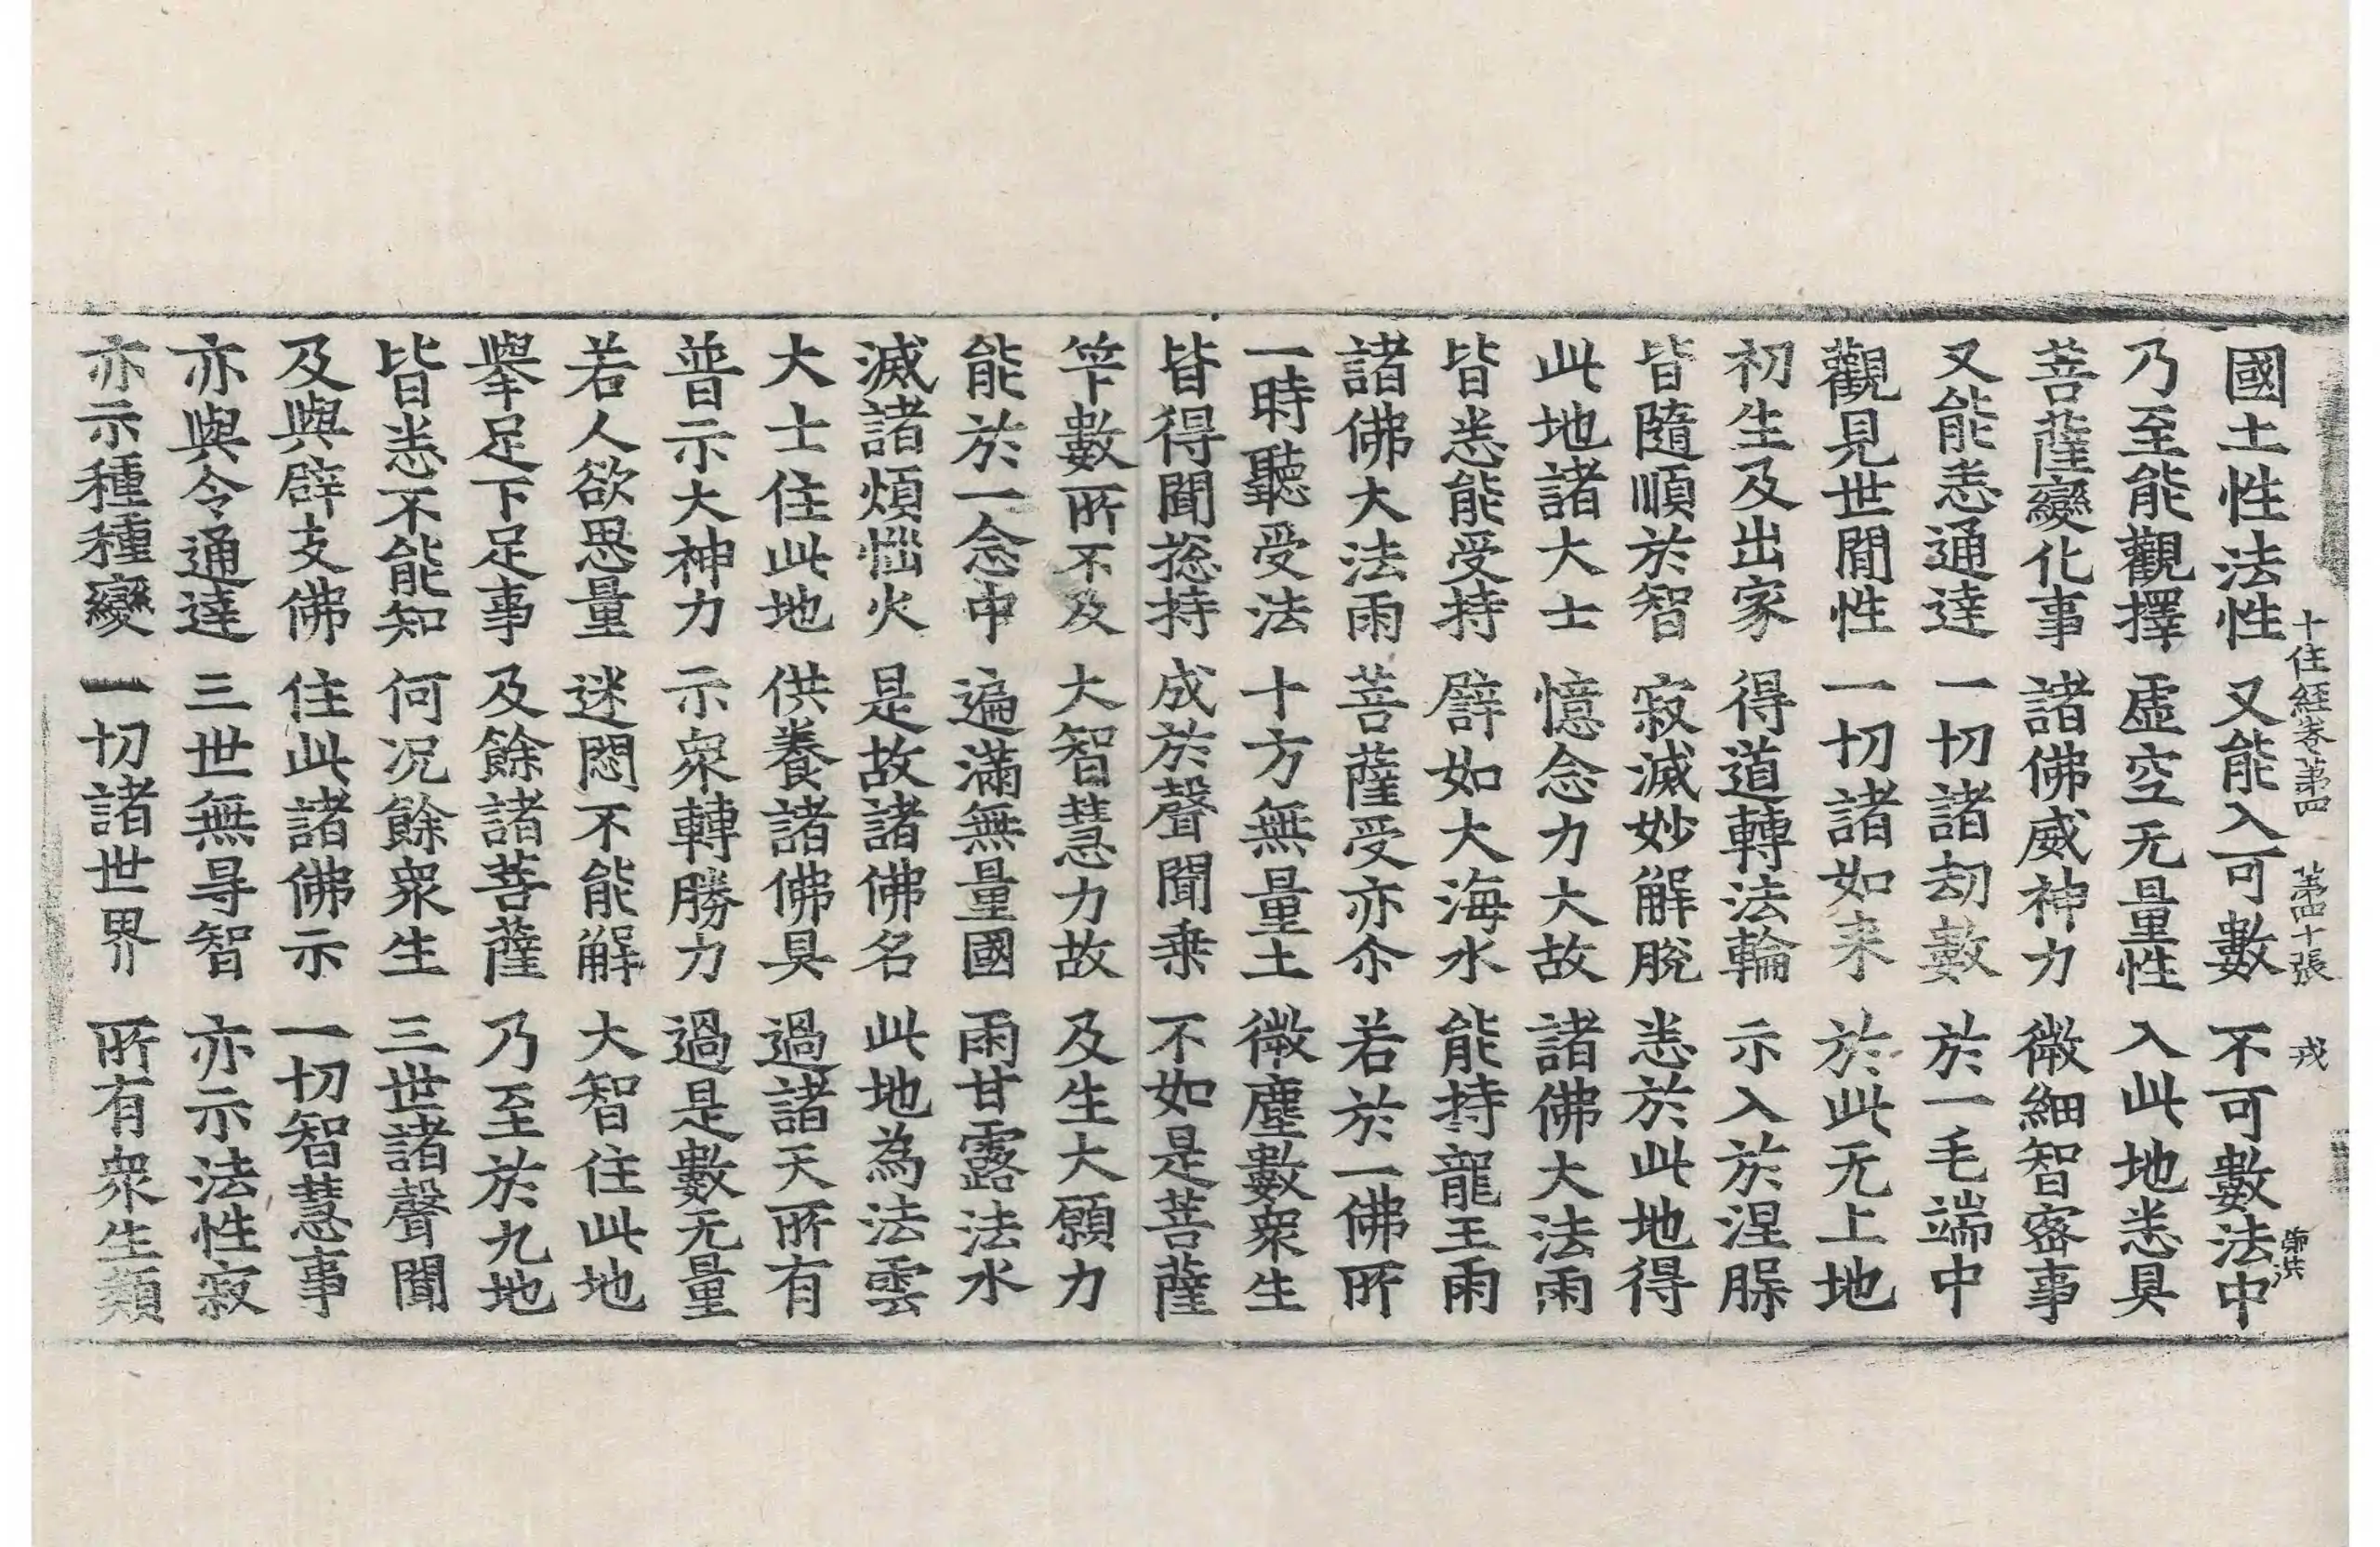 十住經卷第四 第四十張 戎
國土性法性 又能入可數 不可數法中
乃至能觀擇 虛空无量性 入此地悉具
菩薩變化事 諸佛威神力 微細智密事
又能悉通達 一切諸劫數 於一毛端中
觀見世閒性 一切諸如来 於此无上地
初生及出家 得道轉法輪 示入於涅槃
皆隨順於智 寂滅妙解脫 悉於此地得
此地諸大士 憶念力大故 諸佛大法雨
皆悉能受持 譬如大海水 能持龍王雨
諸佛大法雨 菩薩受亦尒 若於一佛所
一時聽受法 十方無量土 微塵數衆生
皆得聞揔持 成於聲聞乗 不如是菩薩
笇數所不及 大智慧力故 及生大願力
能於一念中 遍滿無量國 雨甘露法水
滅諸煩惱火 是故諸佛名 此地為法雲
大士住此地 供養諸佛具 過諸天所有
普示大神力 示衆轉勝力 過是數无量
若人欲思量 迷悶不能解 大智住此地
舉足下足事 及餘諸菩薩 乃至於九地
皆悉不能知 何况餘衆生 三世諸聲聞
及與辟支佛 住此諸佛示 一切智慧事
亦與令通達 三世無㝵智 亦示法性寂
亦示種種變 一切諸世界 所有衆生類